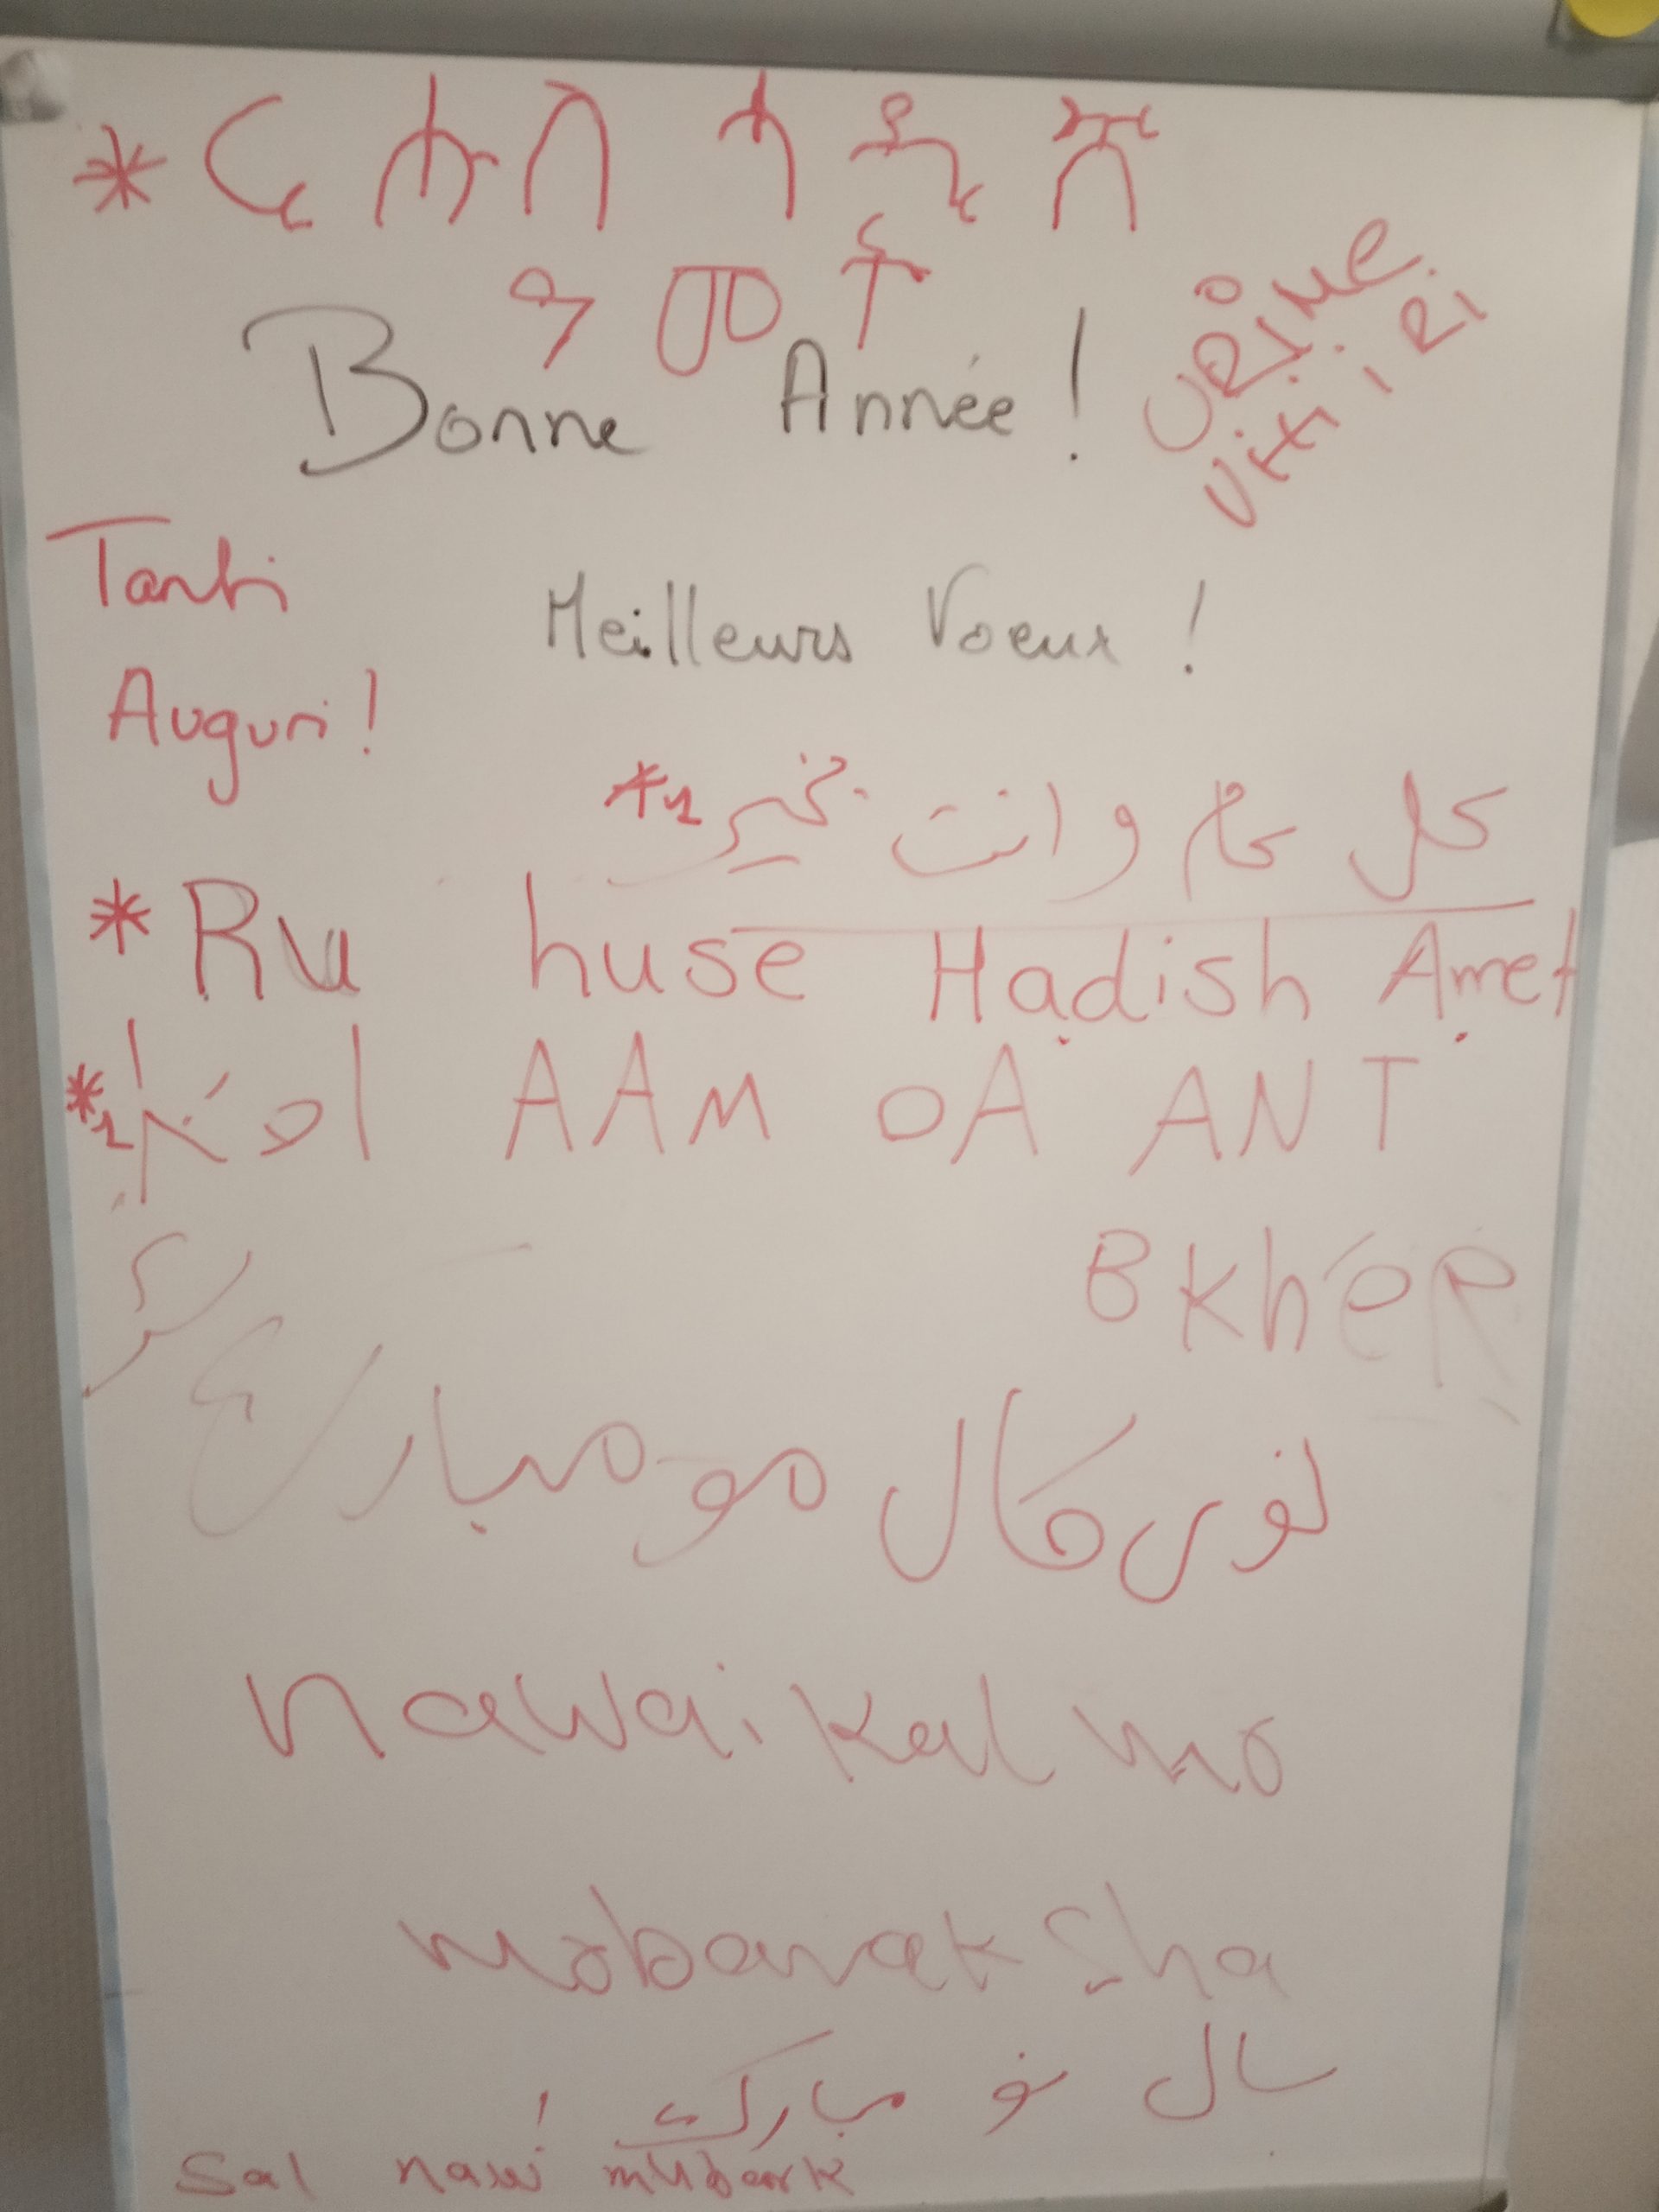 * ርሑስ ሓዱሽ
ዓመት
Bonne Année !
URIME
VITI RI
Tanti
Auguri !
Meilleurs Voeux !
كل عام وانت بخير *1
* Ru huse Hadish Amet
*1 Kol AAM OA ANT
BKhER
نوی کال مو مبارک
nawai kal mo
mobarak Sha
سال نو مبارک !
Sal nawi mubark